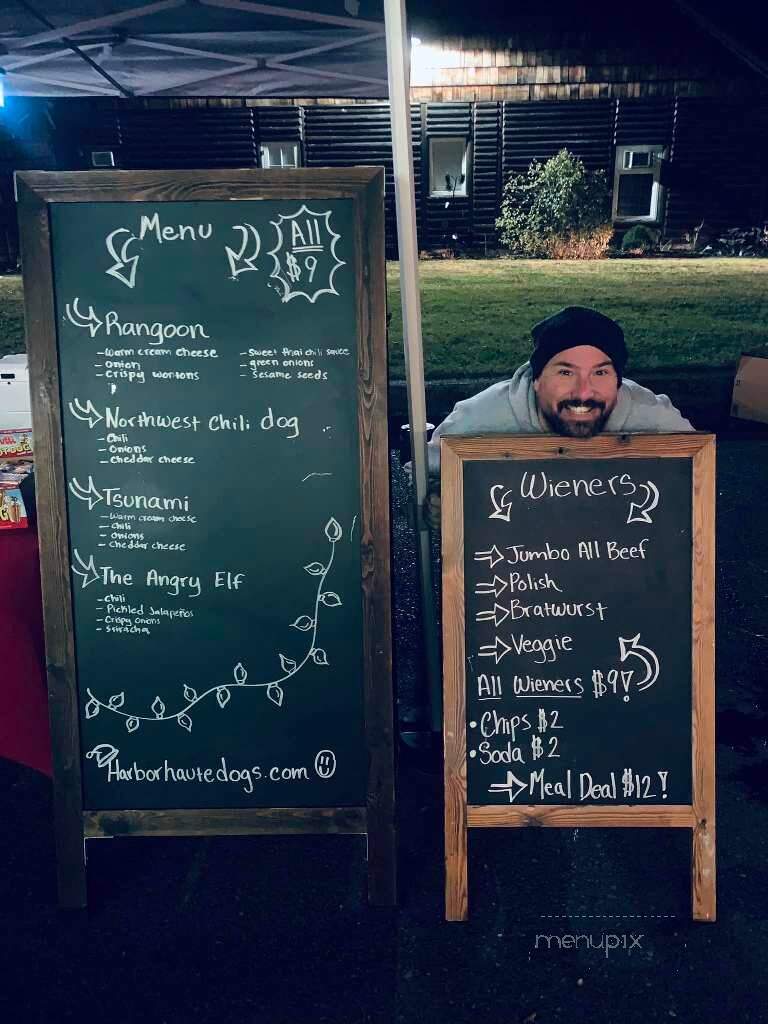 Menu
All
$9
Rangoon
- Warm cream cheese
- Onion
- Crispy wontons
- Sweet thai chili sauce
- green onions
- Sesame seeds
Northwest Chili dog
- Chili
- Onions
- Cheddar cheese
Tsunami
- Warm cream cheese
- Chili
- Onions
- Cheddar cheese
The Angry Elf
- Chili
- Pickled Jalapeños
- Crispy onions
- Sriracha
Harborhautedogs.com
Wieners
Jumbo All Beef
Polish
Bratwurst
Veggie
All Wieners $9!
• Chips $2
• Soda $2
Meal Deal $12!
menupix